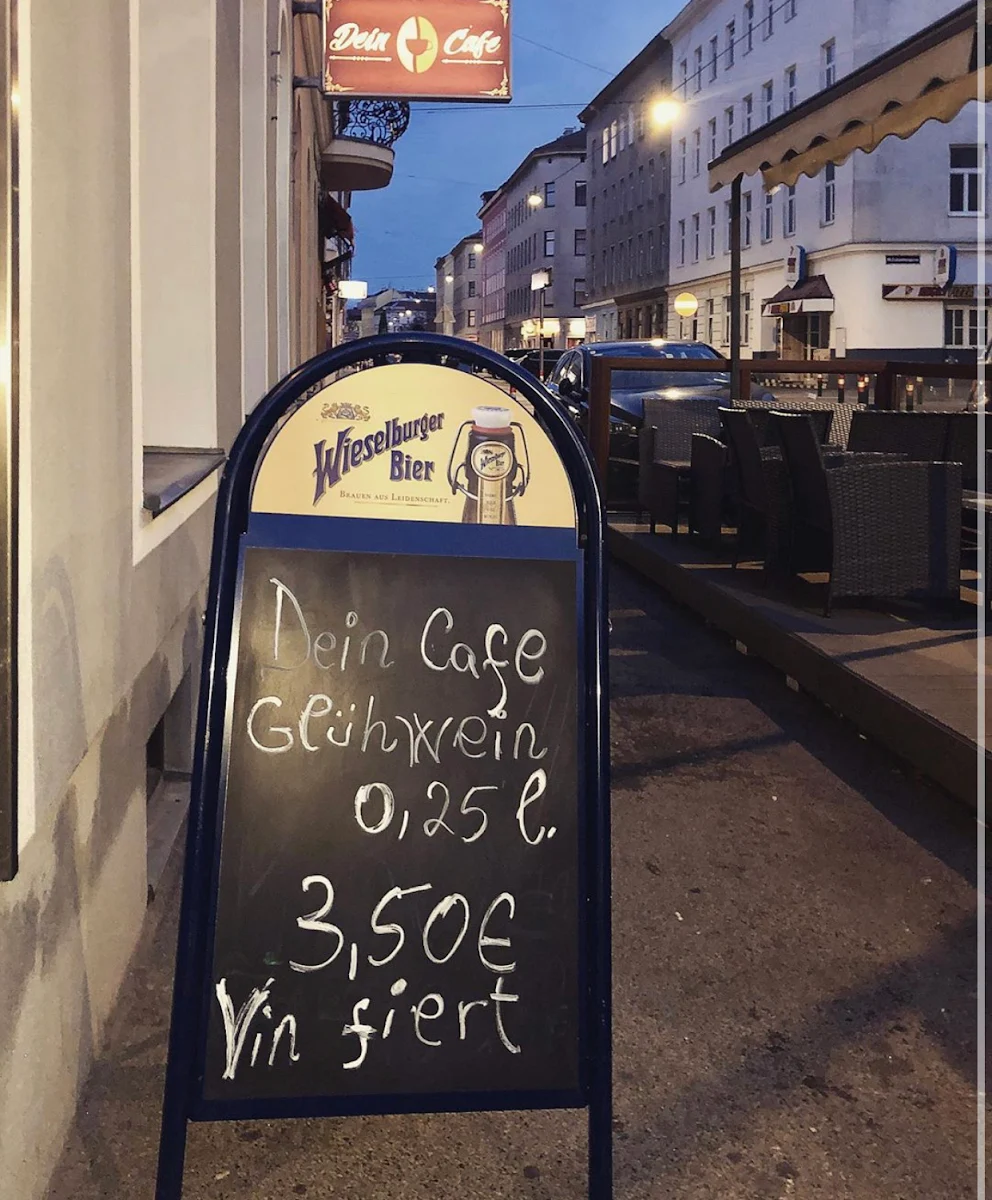 Dein Cafe
Wieselburger
Bier
BRAUEN AUS LEIDENSCHAFT.
Dein Cafe
Glühwein
0,25 l.
3,50€
Vin fiert